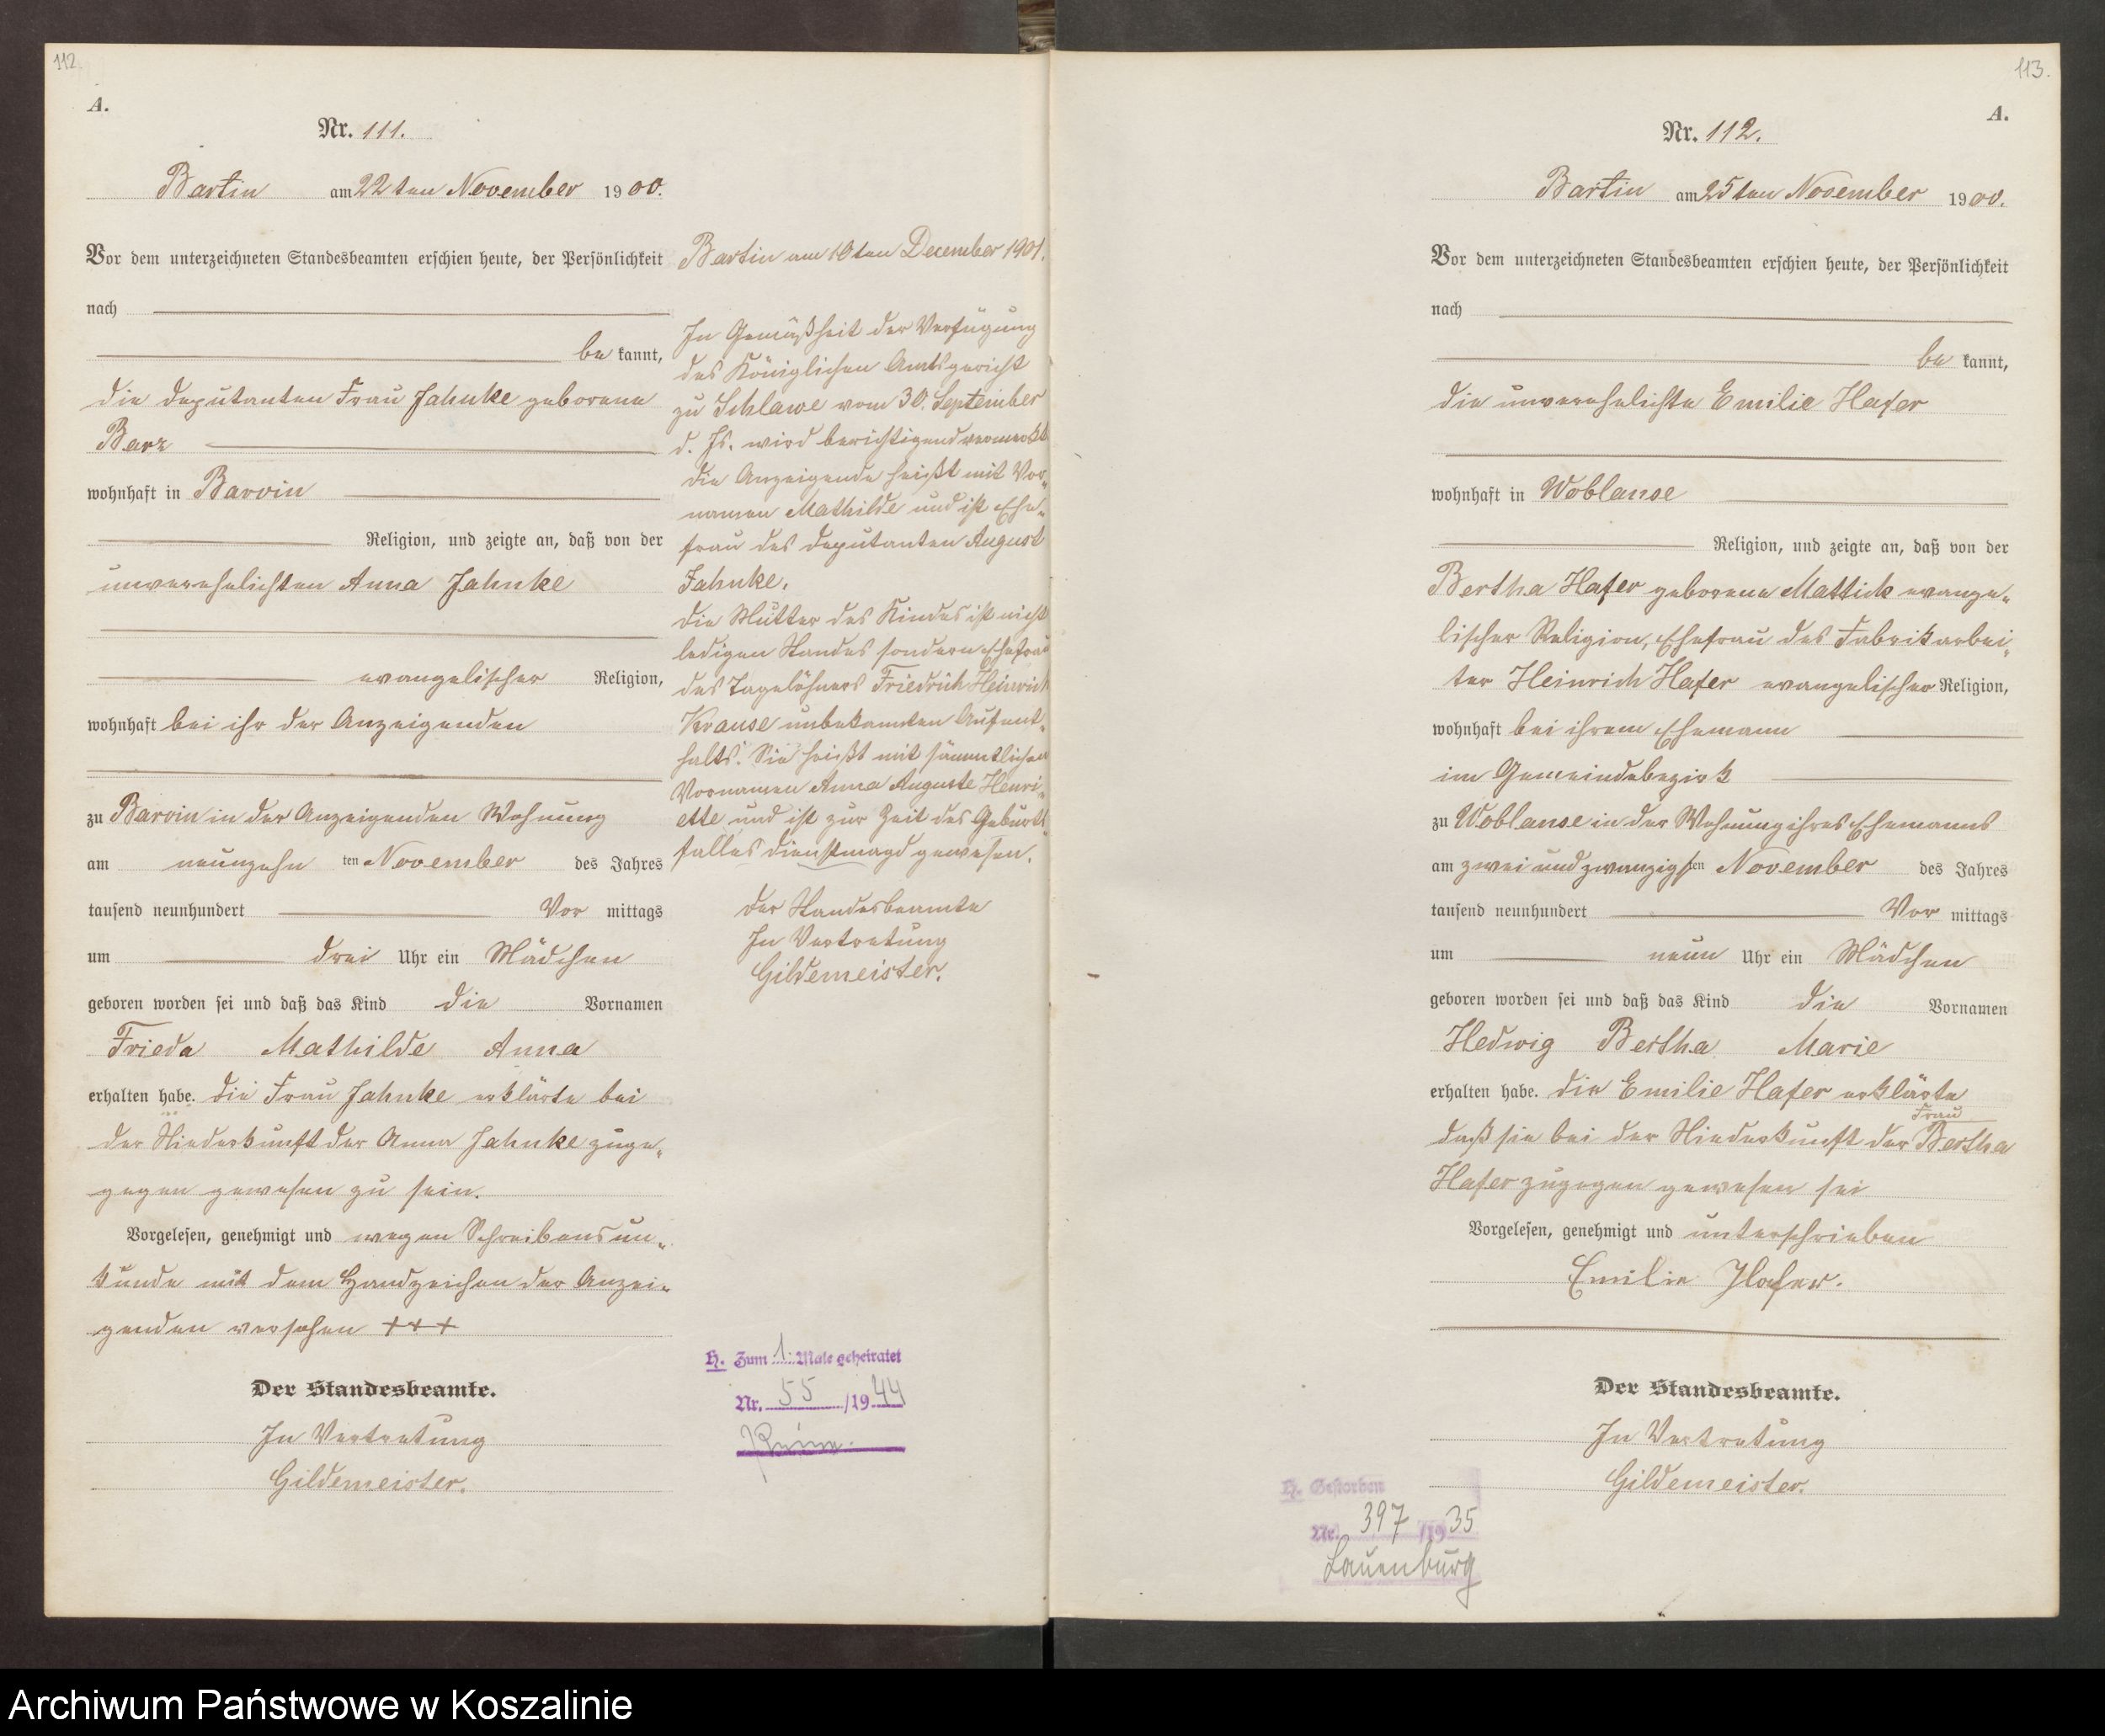 112.
A.
Nr. 111.
Bartin am 22ten November 1900.
Vor dem unterzeichneten Standesbeamten erschien heute, der Persönlichkeit
nach
be kannt,
die Deputanten Frau Jahnke geborene
Barz
wohnhaft in Barvin
Religion, und zeigte an, daß von der
unverehelichten Anna Jahnke
evangelischer Religion,
wohnhaft bei ihr der Anzeigenden
zu Barvin in der Anzeigenden Wohnung
am neunzehn ten November des Jahres
tausend neunhundert Vor mittags
um drei Uhr ein Mädchen
geboren worden sei und daß das Kind die Vornamen
Frieda Mathilde Anna
erhalten habe. Die Frau Jahnke erklärte bei
der Niederkunft der Anna Jahnke zuge-
gegen gewesen zu sein.
Vorgelesen, genehmigt und wegen Schreibensun-
kunde mit dem Handzeichen der Anzei-
genden versehen +++
Der Standesbeamte.
In Vertretung
Gildemeister.
Bartin am 10ten December 1901.
In Gemäßheit der Verfügung
des Königlichen Amtsgericht
zu Schlawe vom 30. September
d. Js. wird berichtigend vermerkt
die Anzeigende heißt mit Vor-
namen Mathilde und ist Ehe-
frau des Deputanten August
Jahnke.
Die Mutter des Kindes ist nicht
ledigen Standes sondern Ehefrau
des Tagelöhners Friedrich Heinrich
Krause unbekannten Aufent-
halts. Sie heißt mit sämmtlichen
Vornamen Anna Auguste Henri-
ette und ist zur Zeit des Geburts-
falles Dienstmagd gewesen.
Der Standesbeamte
In Vertretung
Gildemeister.
H. Zum 1. Male geheiratet
Nr. 55 /1944
113.
A.
Nr. 112.
Bartin am 25ten November 1900.
Vor dem unterzeichneten Standesbeamten erschien heute, der Persönlichkeit
nach
be kannt,
die unverehelichte Emilie Hafer
wohnhaft in Woblanse
Religion, und zeigte an, daß von der
Bertha Hafer geborene Mattick evange-
lischer Religion, Ehefrau des Fabrikarbei-
ter Heinrich Hafer evangelischer Religion,
wohnhaft bei ihrem Ehemann
im Gemeindebezirk
zu Woblanse in der Wohnung ihres Ehemanns
am zwei und zwanzigsten November des Jahres
tausend neunhundert Vor mittags
um neun Uhr ein Mädchen
geboren worden sei und daß das Kind die Vornamen
Hedwig Bertha Marie
erhalten habe. Die Emilie Hafer erklärte
Frau
daß sie bei der Niederkunft der Bertha
Hafer zugegen gewesen sei
Vorgelesen, genehmigt und unterschrieben
Emilie Hafer.
Der Standesbeamte.
In Vertretung
Gildemeister.
H. Gestorben
Nr. 397 /1935
Lauenburg
Archiwum Państwowe w Koszalinie